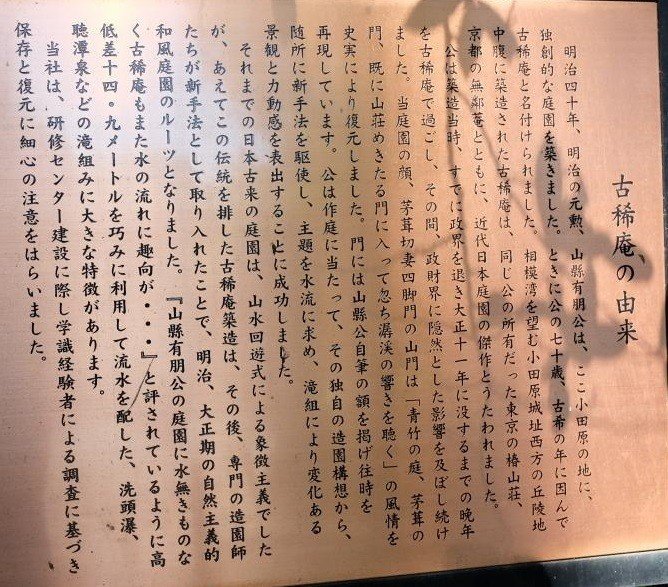 古稀庵の由来
明治四十年、明治の元勲、山縣有朋公は、ここ小田原の地に、
独創的な庭園を築きました。ときに公の七十歳、古希の年に因んで
古稀庵と名付けられました。相模湾を望む小田原城址西方の丘陵地
中腹に築造された古稀庵は、同じ公の所有だった東京の椿山荘、
京都の無鄰菴とともに、近代日本庭園の傑作とうたわれました。
公は築造当時、すでに政界を退き大正十一年に没するまでの晩年
を古稀庵で過ごし、その間、政財界に隠然とした影響を及ぼし続け
ました。当庭園の顔、茅茸切妻四脚門の山門は「青竹の庭、茅茸の
門、既に山荘めきたる門に入って忽ち潺渓の響きを聴く」の風情を
史実により復元しました。門には山縣公自筆の額を掲げ往時を
再現しています。公は作庭に当たって、その独自の造園構想から、
随所に新手法を駆使し、主題を水流に求め、滝組により変化ある
景観と力動感を表出することに成功しました。
それまでの日本古来の庭園は、山水回遊式による象徴主義でした
が、あえてこの伝統を排した古稀庵築造は、その後、専門の造園師
たちが新手法として取り入れたことで、明治、大正期の自然主義的
和風庭園のルーツとなりました。『山縣有朋公の庭園に水無きものな
く古稀庵もまた水の流れに趣向が・・・』と評されているように高
低差十四・九メートルを巧みに利用して流水を配した、洗頭瀑、
聴潭泉などの滝組みに大きな特徴があります。
当社は、研修センター建設に際し学識経験者による調査に基づき
保存と復元に細心の注意をはらいました。